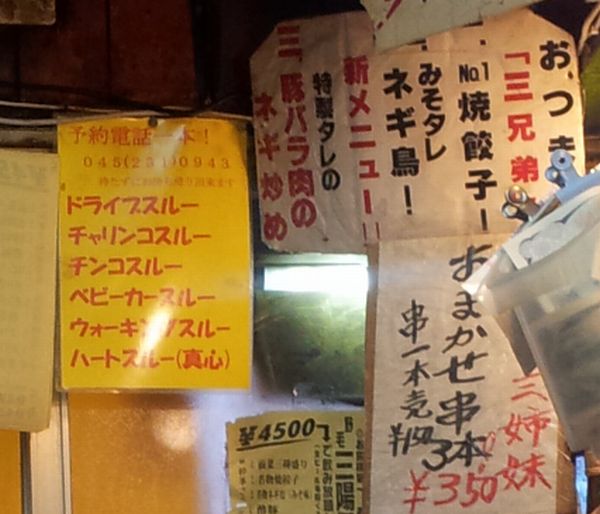 予約電話一本!
045(231)0943
待たずにお持ち帰り出来ます
ドライブスルー
チャリンコスルー
チンコスルー
ベビーカースルー
ウォーキングスルー
ハートスルー(真心)
おつま
「三兄弟
No.1 焼餃子!
みそタレ
ネギ鳥!
新メニュー!!
特製タレの
三、豚バラ肉の
ネギ炒め
おまかせ串
3本
¥350
串一本売
三姉妹
¥4500
て飲み放題
三陽